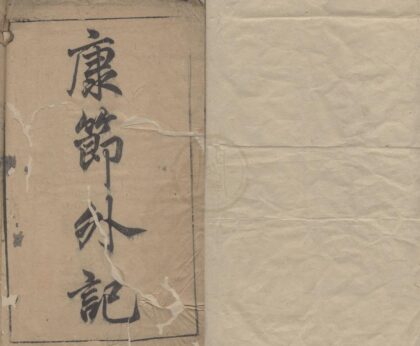 康節外記